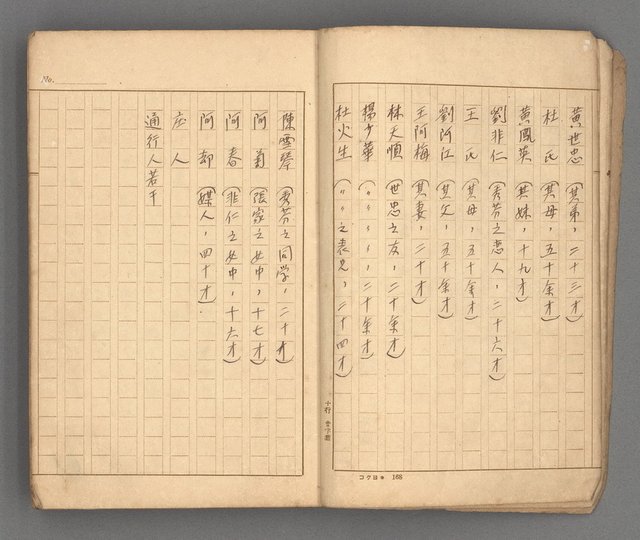 黃世忠（其弟，二十三才）
杜　氏（其母，五十余才）
黃鳳英（其妹，十九才）
劉非仁（秀芳之恋人，二十六才）
王　氏（其母，五十余才）
劉阿江（其父，五十余才）
王阿梅（其妻，二十才）
林天順（世忠之友，二十余才）
楊少華（〃〃〃〃，二十余才）
杜火生（〃〃之表兄，二十四才）
十行 廿字詰
コクヨ 168
No.
陳雪琴（秀芳之同学，二十才）
阿　菊（張家之女中，十七才）
阿　春（非仁之女中，十六才）
阿　却（媒人，四十才）
店　人
通行人若干